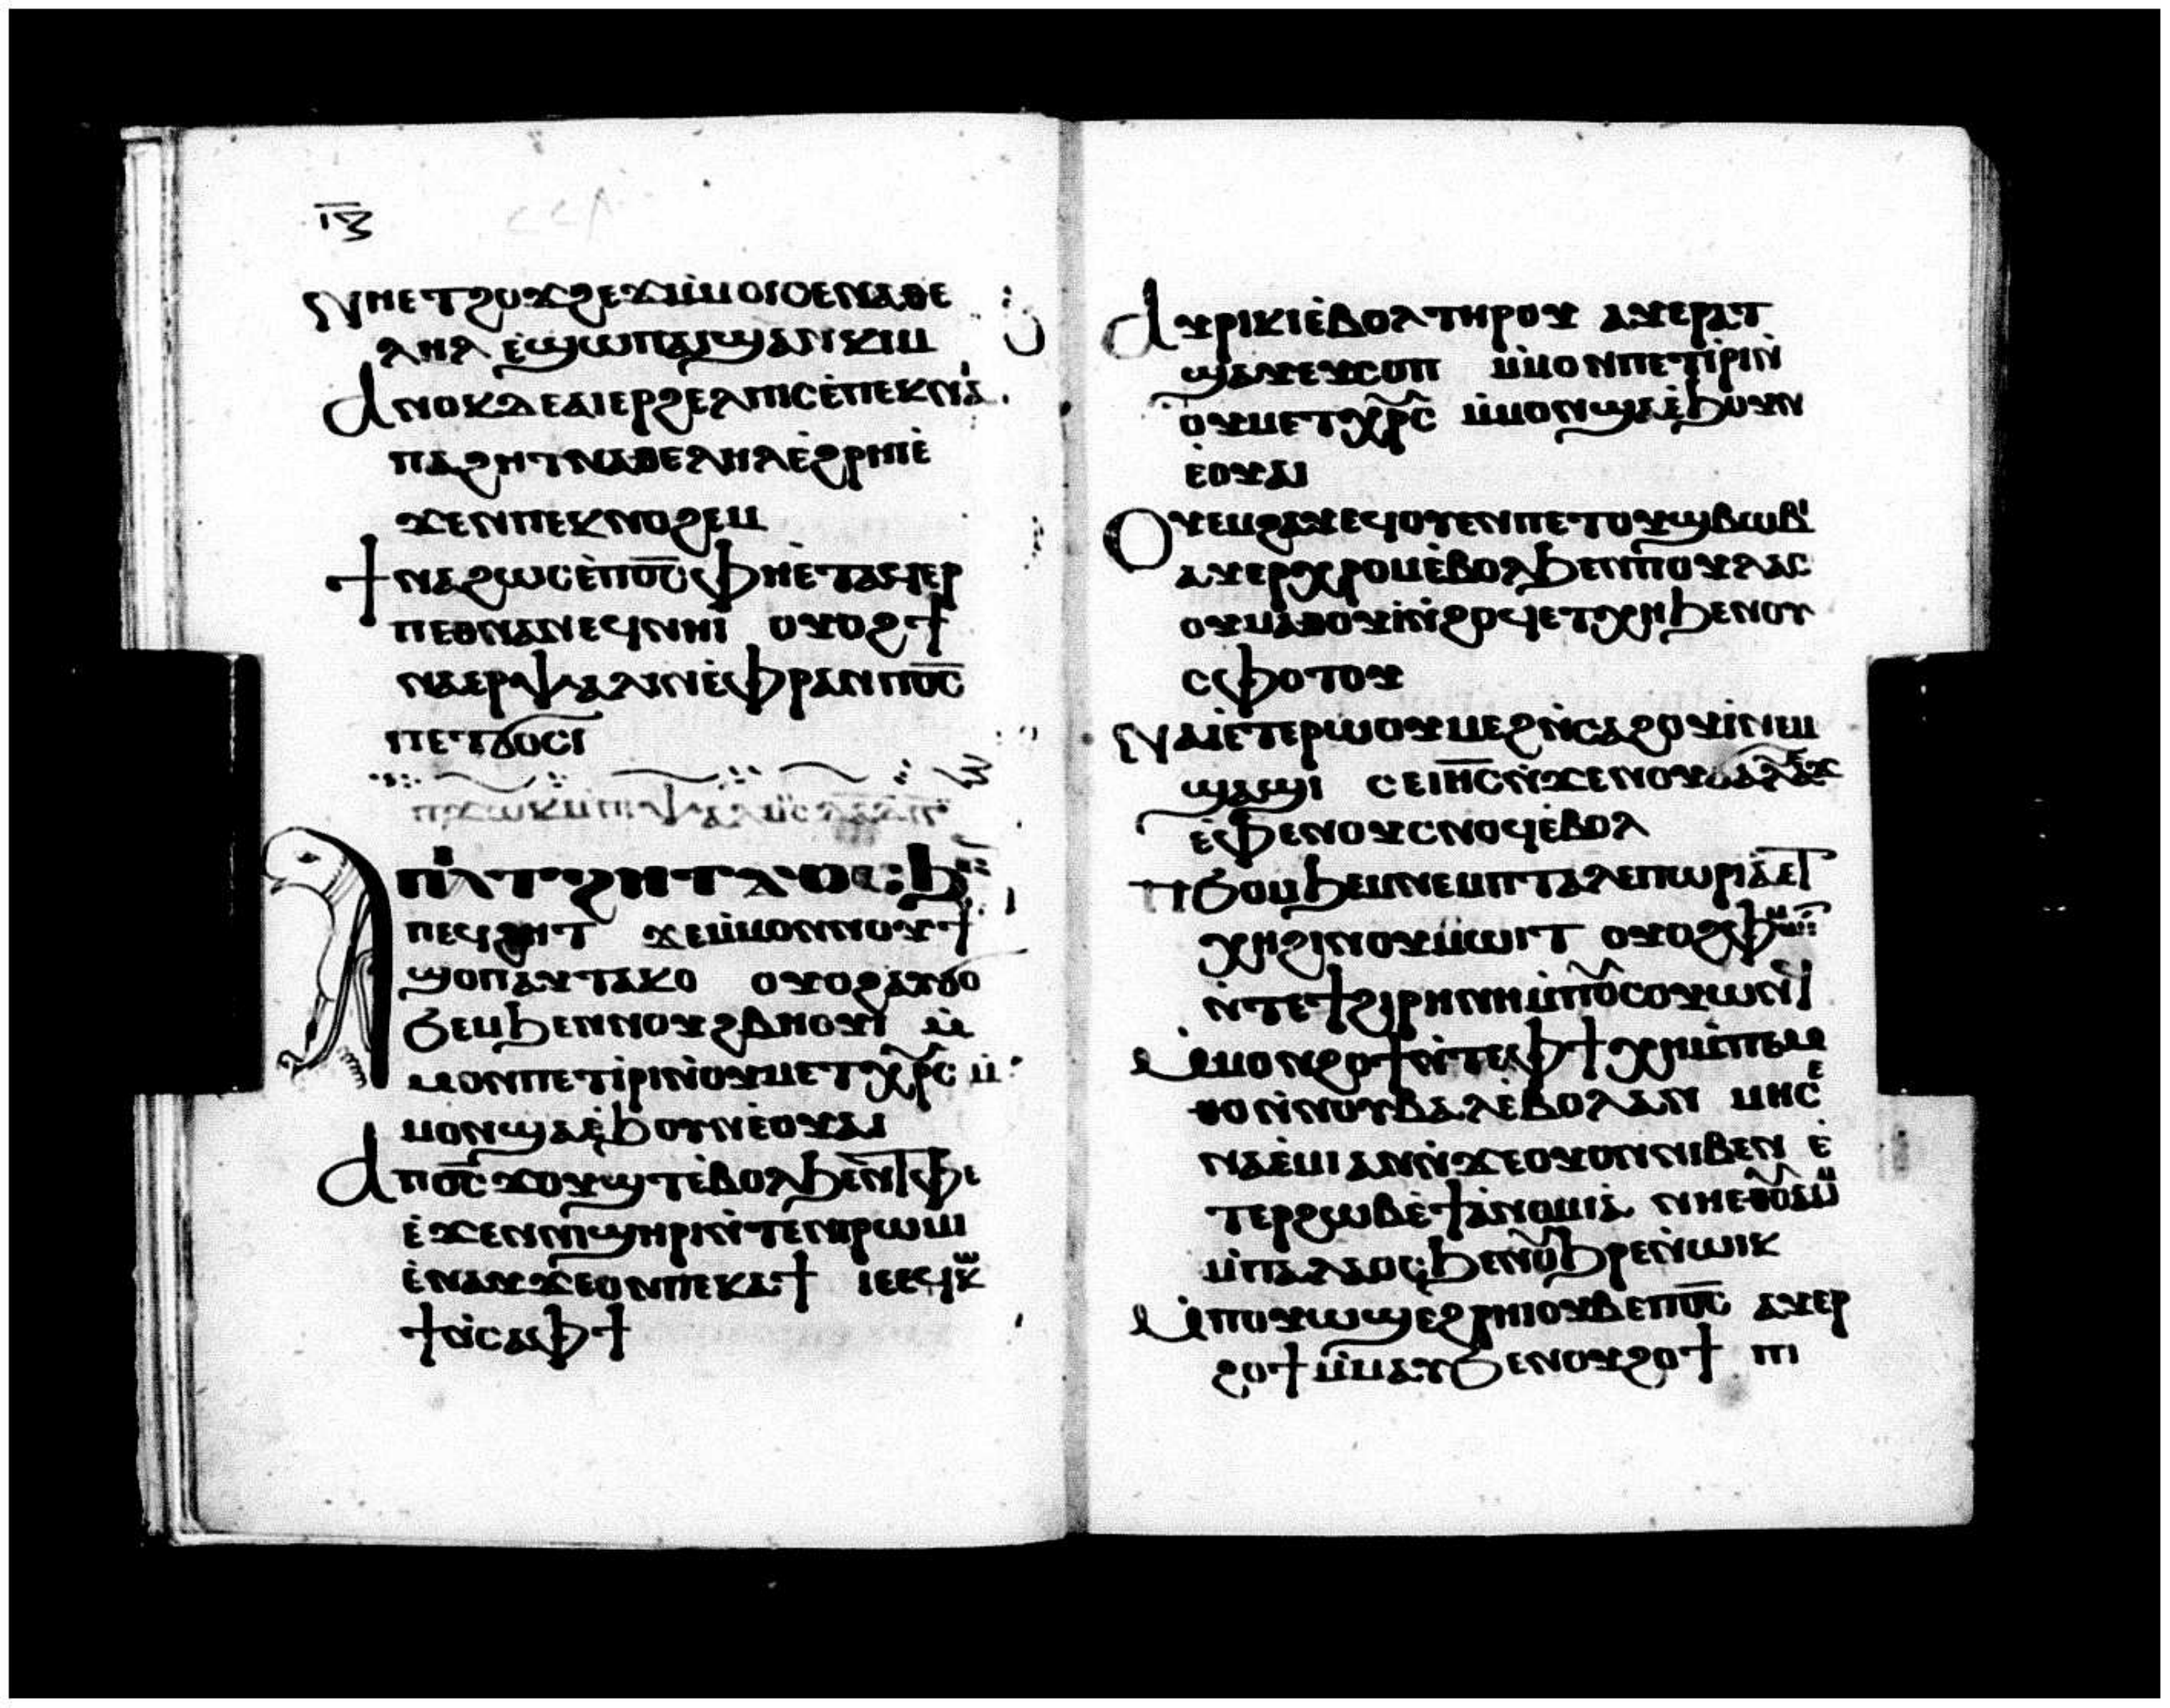 ⲓⲅ
ⲛⲏⲉⲧϩⲟϫϩⲉϫⲙ̀ⲙⲟⲓⲥⲉⲛⲁⲑⲉ
ⲗⲏⲗ ⲉ̀ϣⲱⲡⲁⲓϣⲁⲛⲕⲓⲙ
ⲁⲛⲟⲕⲇⲉⲁⲓⲉⲣϩⲉⲗⲡⲓⲥⲉ̀ⲡⲉⲕⲛⲁⲓ
ⲡⲁϩⲏⲧⲛⲁⲑⲉⲗⲏⲗⲉ̀ϩⲣⲏⲓⲉ̀
ϫⲉⲛⲡⲉⲕⲛⲟϩⲉⲙ
ϯⲛⲁϩⲱⲥⲉ̀ⲡⲟ̅ⲥ̅ⲫⲏⲉ̀ⲧⲁϥⲉⲣ
ⲡⲉⲑⲛⲁⲛⲉϥⲛⲏⲓ ⲟⲩⲟϩϯ
ⲛⲁⲉⲣⲯⲁⲗⲓⲛⲉ̀ⲫⲣⲁⲛⲡⲟ̅ⲥ̅
ⲡⲉⲧϭⲟⲥⲓ
ⲡϫⲱⲕⲙ̀ⲡⲓⲯⲁⲗⲙⲟⲥ
ⲁⲡⲓⲁⲧϩⲏⲧϫⲟⲥϧⲉⲛ
ⲡⲉϥϩⲏⲧ ϫⲉⲙ̀ⲙⲟⲛⲛⲟⲩϯ
ϣⲟⲡⲁⲩⲧⲁⲕⲟ ⲟⲩⲟϩⲁⲩϭⲟ
ϭⲉⲙϧⲉⲛⲛⲟⲩϩⲃⲏⲟⲩⲓ̀ ⲙ̀
ⲙⲟⲛⲡⲉⲧⲓ̀ⲣⲓⲛ̀ⲟⲩⲙⲉⲧⲭⲣ̅ⲥ̅ ⲙ̀
ⲙⲟⲛϣⲁⲉ̀ϧⲟⲩⲛⲉ̀ⲟⲩⲁⲓ
ⲁⲡⲟ̅ⲥ̅ϫⲟⲩϣⲧⲉ̀ⲃⲟⲗϧⲉⲛⲧⲫⲉ
ⲉ̀ϫⲉⲛⲛⲓϣⲏⲣⲓⲛ̀ⲧⲉⲛⲓⲣⲱⲙⲓ
ⲉ̀ⲛⲁⲩϫⲉⲟⲛⲡⲉⲕⲁϯ ⲓⲉⲉϥⲕⲱ
ϯⲛ̀ⲥⲁⲫϯ
ⲁⲩⲣⲓⲕⲓⲉ̀ⲃⲟⲗⲧⲏⲣⲟⲩ ⲁⲩⲉⲣⲁⲧ
ϣⲁⲩⲉⲩⲥⲟⲡ ⲙ̀ⲙⲟⲛⲡⲉⲧⲓ̀ⲣⲓⲛ̀
ⲟⲩⲙⲉⲧⲭⲣ̅ⲥ̅ ⲙ̀ⲙⲟⲛϣⲁⲉ̀ϧⲟⲩⲛ
ⲉ̀ⲟⲩⲁⲓ
ⲟⲩⲉⲙϩⲁⲩⲉϥⲟⲩⲉⲛⲡⲉⲧⲟⲩϣⲃⲱⲃⲓ
ⲁⲩⲉⲣⲭⲣⲟϥⲉ̀ⲃⲟⲗϧⲉⲛⲡⲟⲩⲗⲁⲥ
ⲟⲩⲙⲁⲑⲟⲩⲓ̀ⲛ̀ϩⲟϥⲉⲧⲭⲏϧⲉⲛⲟⲩ
ⲥⲫⲟⲧⲟⲩ
ⲛⲁⲓⲉ̀ⲧⲉⲣⲱⲟⲩⲙⲉϩⲛ̀ⲥⲁϩⲟⲩⲓ̀ⲛⲉⲙ
ϣⲁϣⲓ ⲥⲉⲓⲏⲥⲛ̀ϫⲉⲛⲟⲩϭⲁⲗⲁⲩϫ
ⲉ̀ⲫⲉⲛⲟⲩⲥⲛⲟϥⲉ̀ⲃⲟⲗ
ⲡϧⲟⲙϧⲉⲙⲛⲉⲙⲡⲧⲁⲗⲉⲡⲱⲣⲓⲁⲉⲧ
ⲭⲏϩⲓⲛⲟⲩⲙⲱⲓⲧ ⲟⲩⲟϩⲫⲙⲱⲓⲧ
ⲛ̀ⲧⲉϯϩⲓⲣⲏⲛⲏⲙ̀ⲡⲟⲩⲥⲟⲩⲱⲛϥ
ⲙ̀ⲙⲟⲛϩⲟϯⲛ̀ⲧⲉⲫϯⲭⲏⲙ̀ⲡⲉⲙ
ⲑⲟⲛ̀ⲛⲟⲩⲃⲁⲗⲉ̀ⲃⲟⲗⲁⲛ ⲙⲏⲥⲉ
ⲛⲁⲉ̀ⲙⲓⲁⲛⲛ̀ϫⲉⲟⲩⲟⲛⲛⲓⲃⲉⲛ ⲉ̀
ⲧⲉⲣϩⲱⲃⲉ̀ϯⲁ̀ⲛⲟⲙⲓⲁ̀ ⲛⲏⲉⲑⲟⲩⲱⲙ
ⲙ̀ⲡⲁⲗⲁⲟⲥϧⲉⲛⲟⲩϧⲣⲉⲛ̀ⲱⲓⲕ
ⲙ̀ⲡⲟⲩⲱϣⲉϩⲣⲏⲓⲟⲩⲃⲉⲡⲟ̅ⲥ̅ ⲁⲩⲉⲣ
ϩⲟϯⲙ̀ⲙⲁⲩϧⲉⲛⲟⲩϩⲟϯ ⲡⲓ